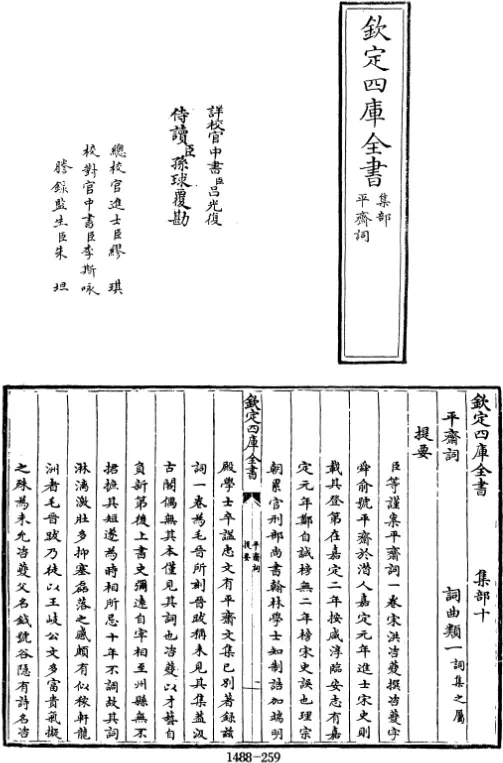 欽定四庫全書
集部
平齋詞
詳校官中書臣呂光復
侍讀臣孫球覆勘
總校官進士臣繆琪
校對官中書臣李斯咏
謄錄監生臣朱坦
欽定四庫全書 集部十
平齋詞 詞曲類一詞集之屬
提要
臣等謹案平齋詞一卷宋洪咨夔撰咨夔字
舜俞號平齋於潜人嘉定元年進士宋史則
載其登第在嘉定二年按咸淳臨安志有嘉
定元年鄭自誠榜無二年榜宋史誤也理宗
朝累官刑部尚書翰林學士知制誥加端明
欽定四庫全書
平齋詞
提要
一
殿學士卒謚忠文有平齋文集已别著錄兹
詞一卷為毛晉所刻晉跋稱未見其集蓋汲
古閣偶無其本僅見其詞也咨夔以才藝自
負新第後上書史彌遠自宰相至州縣無不
捃摭其短遂為時相所忌十年不調故其詞
淋漓激壯多抑塞磊落之感頗有似稼軒龍
洲者毛晉跋乃徒以王岐公文多富貴氣擬
之殊為未允咨夔父名鉞號谷隐有詩名咨
1488-259